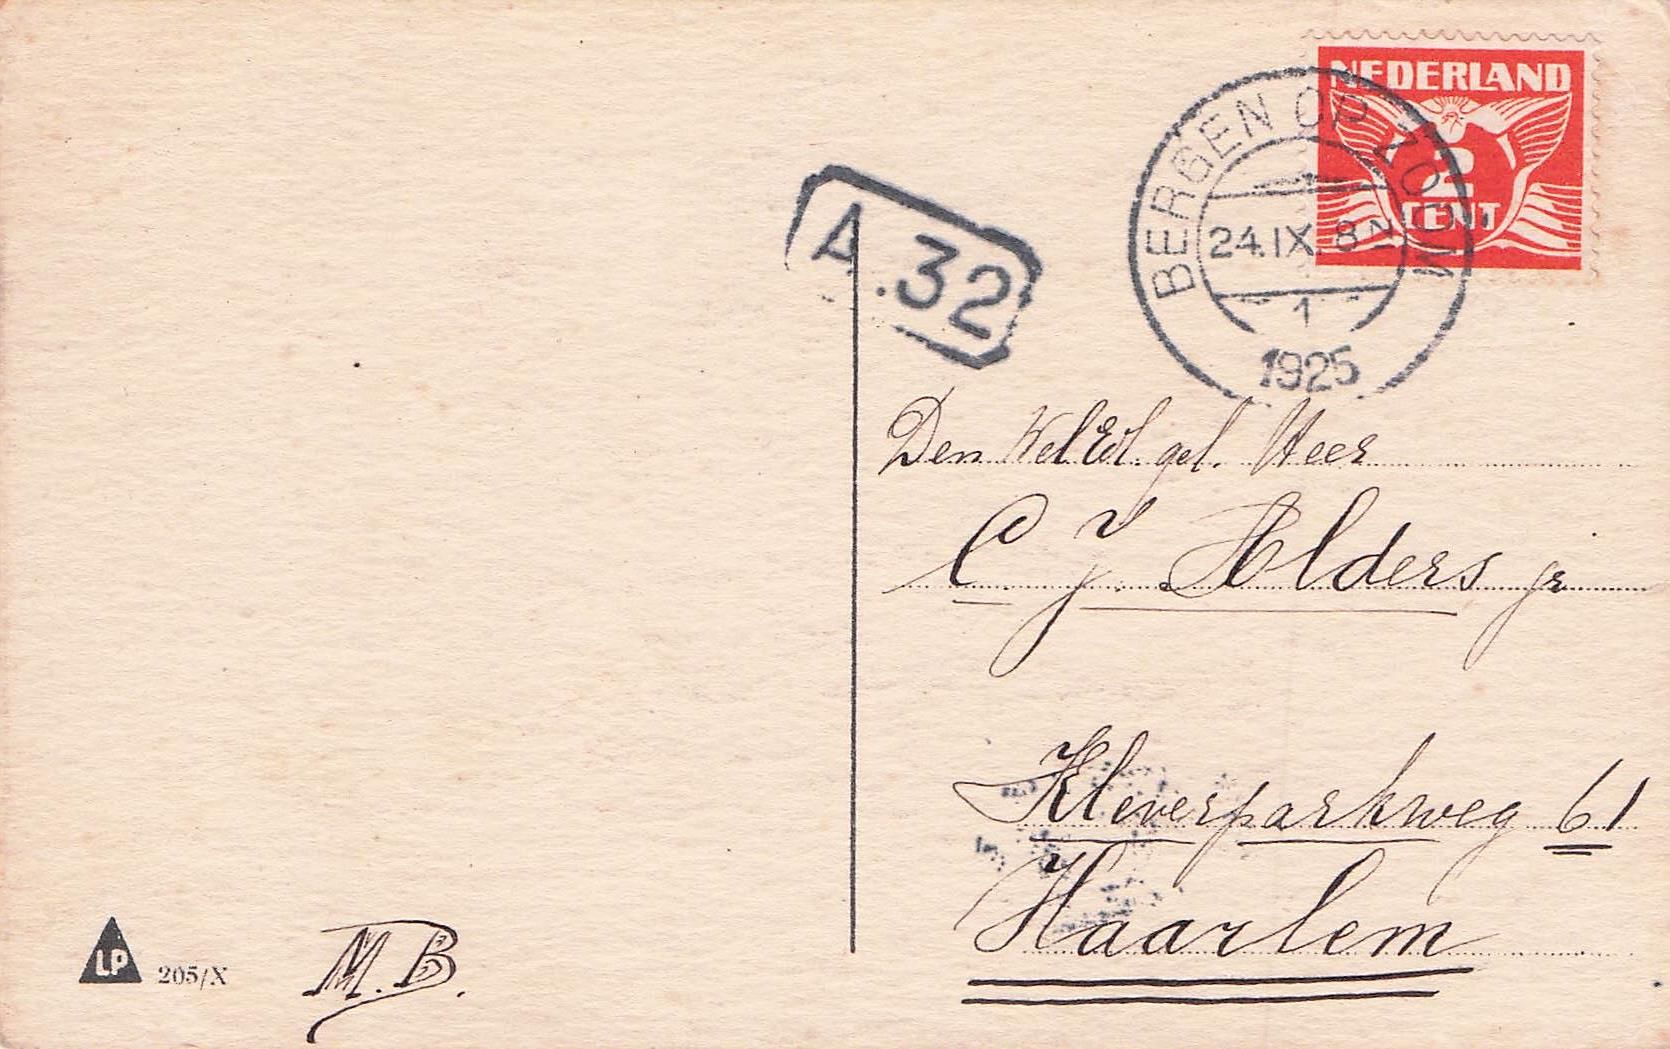 NEDERLAND
2
CENT
BERGEN OP ZOOM
24.IX. 8 N
1
1925
A.32
Den WelEd. gel. Heer
C J. Alders jr
Kleverparkweg 61
Haarlem
LP 205/X
M.B.